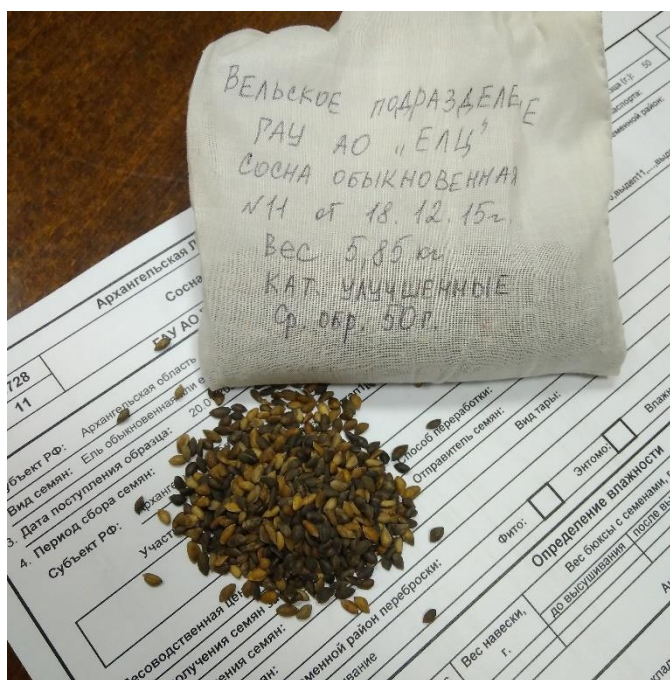 ВЕЛЬСКОЕ ПОДРАЗДЕЛЕ'Е
ГАУ АО „ЕЛЦ"
СОСНА ОБЫКНОВЕННАЯ
N11 от 18.12.15г.
Вес 5,85 кг
КАТ. УЛУЧШЕННЫЕ
Ср. обр. 50г.
Архангельская
Сосна
ГАУ АО
728
11
Субъект РФ: Архангельская область
Вид семян: Ель обыкновенная
3. Дата поступления образца: 20.0
4. Период сбора семян:
Субъект РФ: Арханг
Участ
Способ переработки:
Отправитель семян:
Вид тары:
Влажн
Фито:
Энтомо:
Определение влажности
Вес бюксы с семенами,
до высушивания
после вы
Вес навески,
г.
есоводственная цен
получения семян
ения семян:
менной район переброски:
вание
50